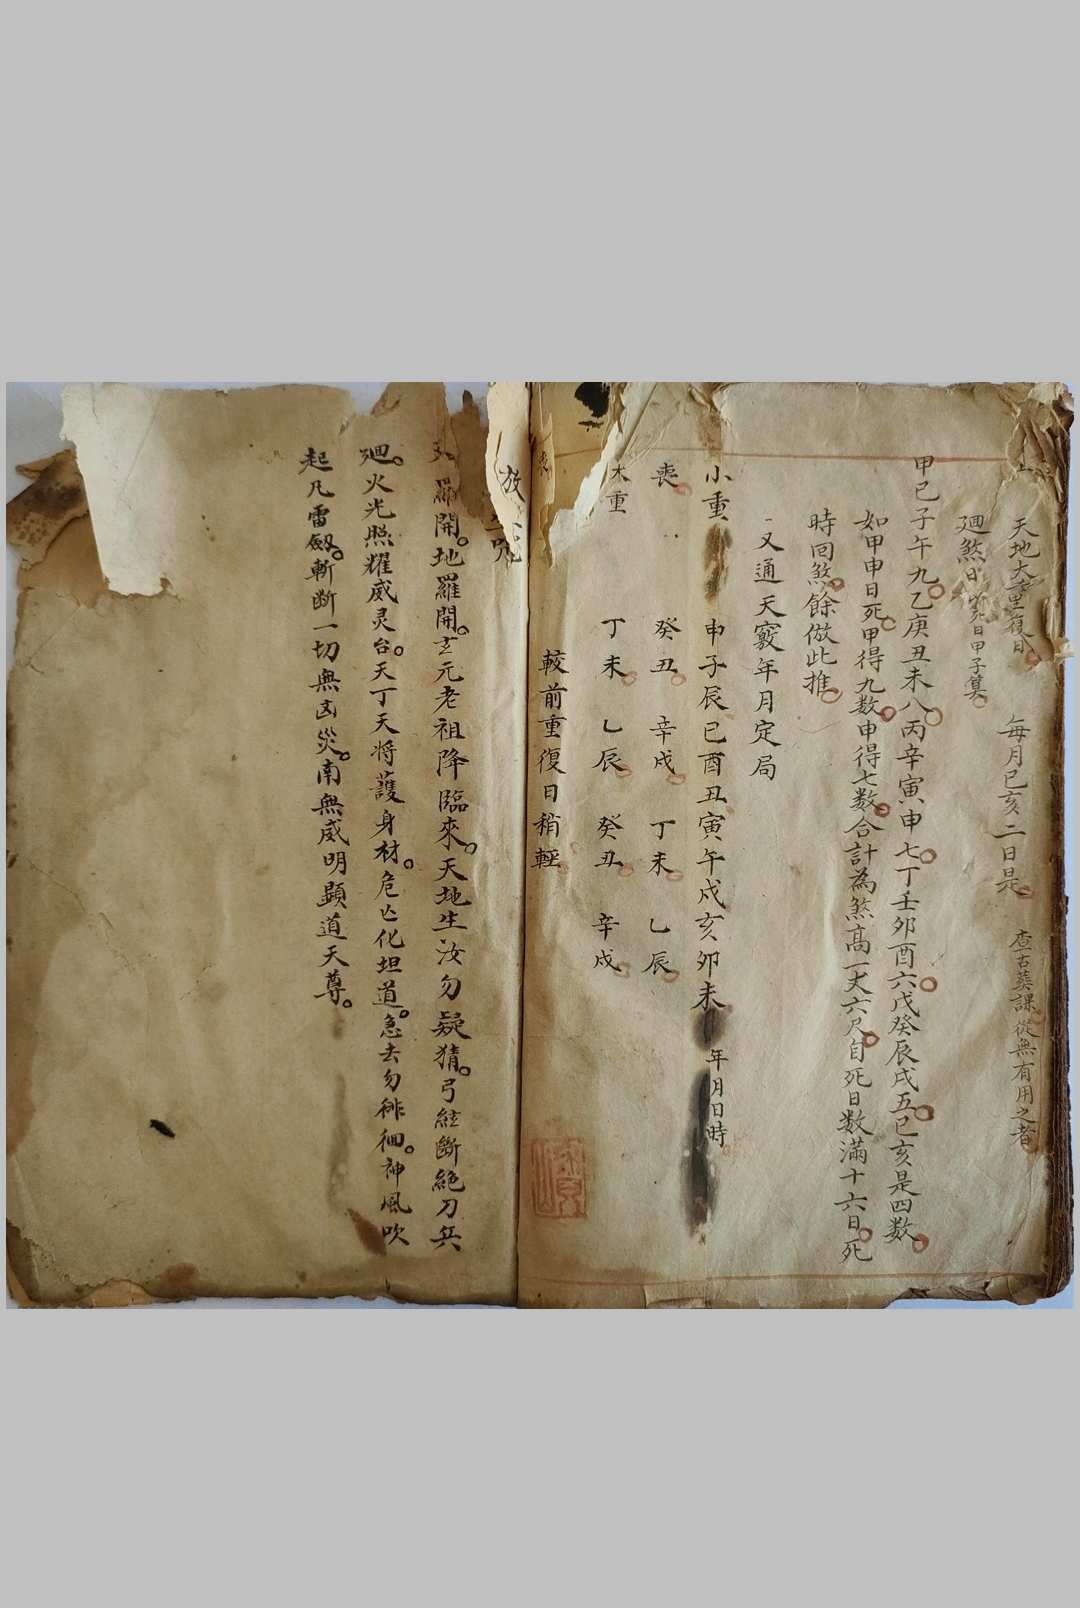 天地大重復日 每月已亥二日是 查古葬課從無有用之者
廻煞日 死日甲子算
甲己子午九乙庚丑未八丙辛寅申七丁壬卯酉六戊癸辰戌五巳亥是四数
如甲申日死甲得九数申得七数合計為煞高一丈六尺自死日数滿十六日死
時回煞餘倣此推
又通天竅年月定局
小重 申子辰巳酉丑寅午戌亥卯未 年月日時
喪 癸丑 辛戌 丁未 乙辰
重 丁未 乙辰 癸丑 辛戌
較前重復日稍輕
放 咒
羅開地羅開玄元老祖降臨來天地生汝勿疑猜弓絃斷絕刀兵
廻火光照耀威灵台天丁天将護身材危亡化坦道急去勿徘徊神風吹
起凡雷劔斬断一切無凶災南無威明顕道天尊